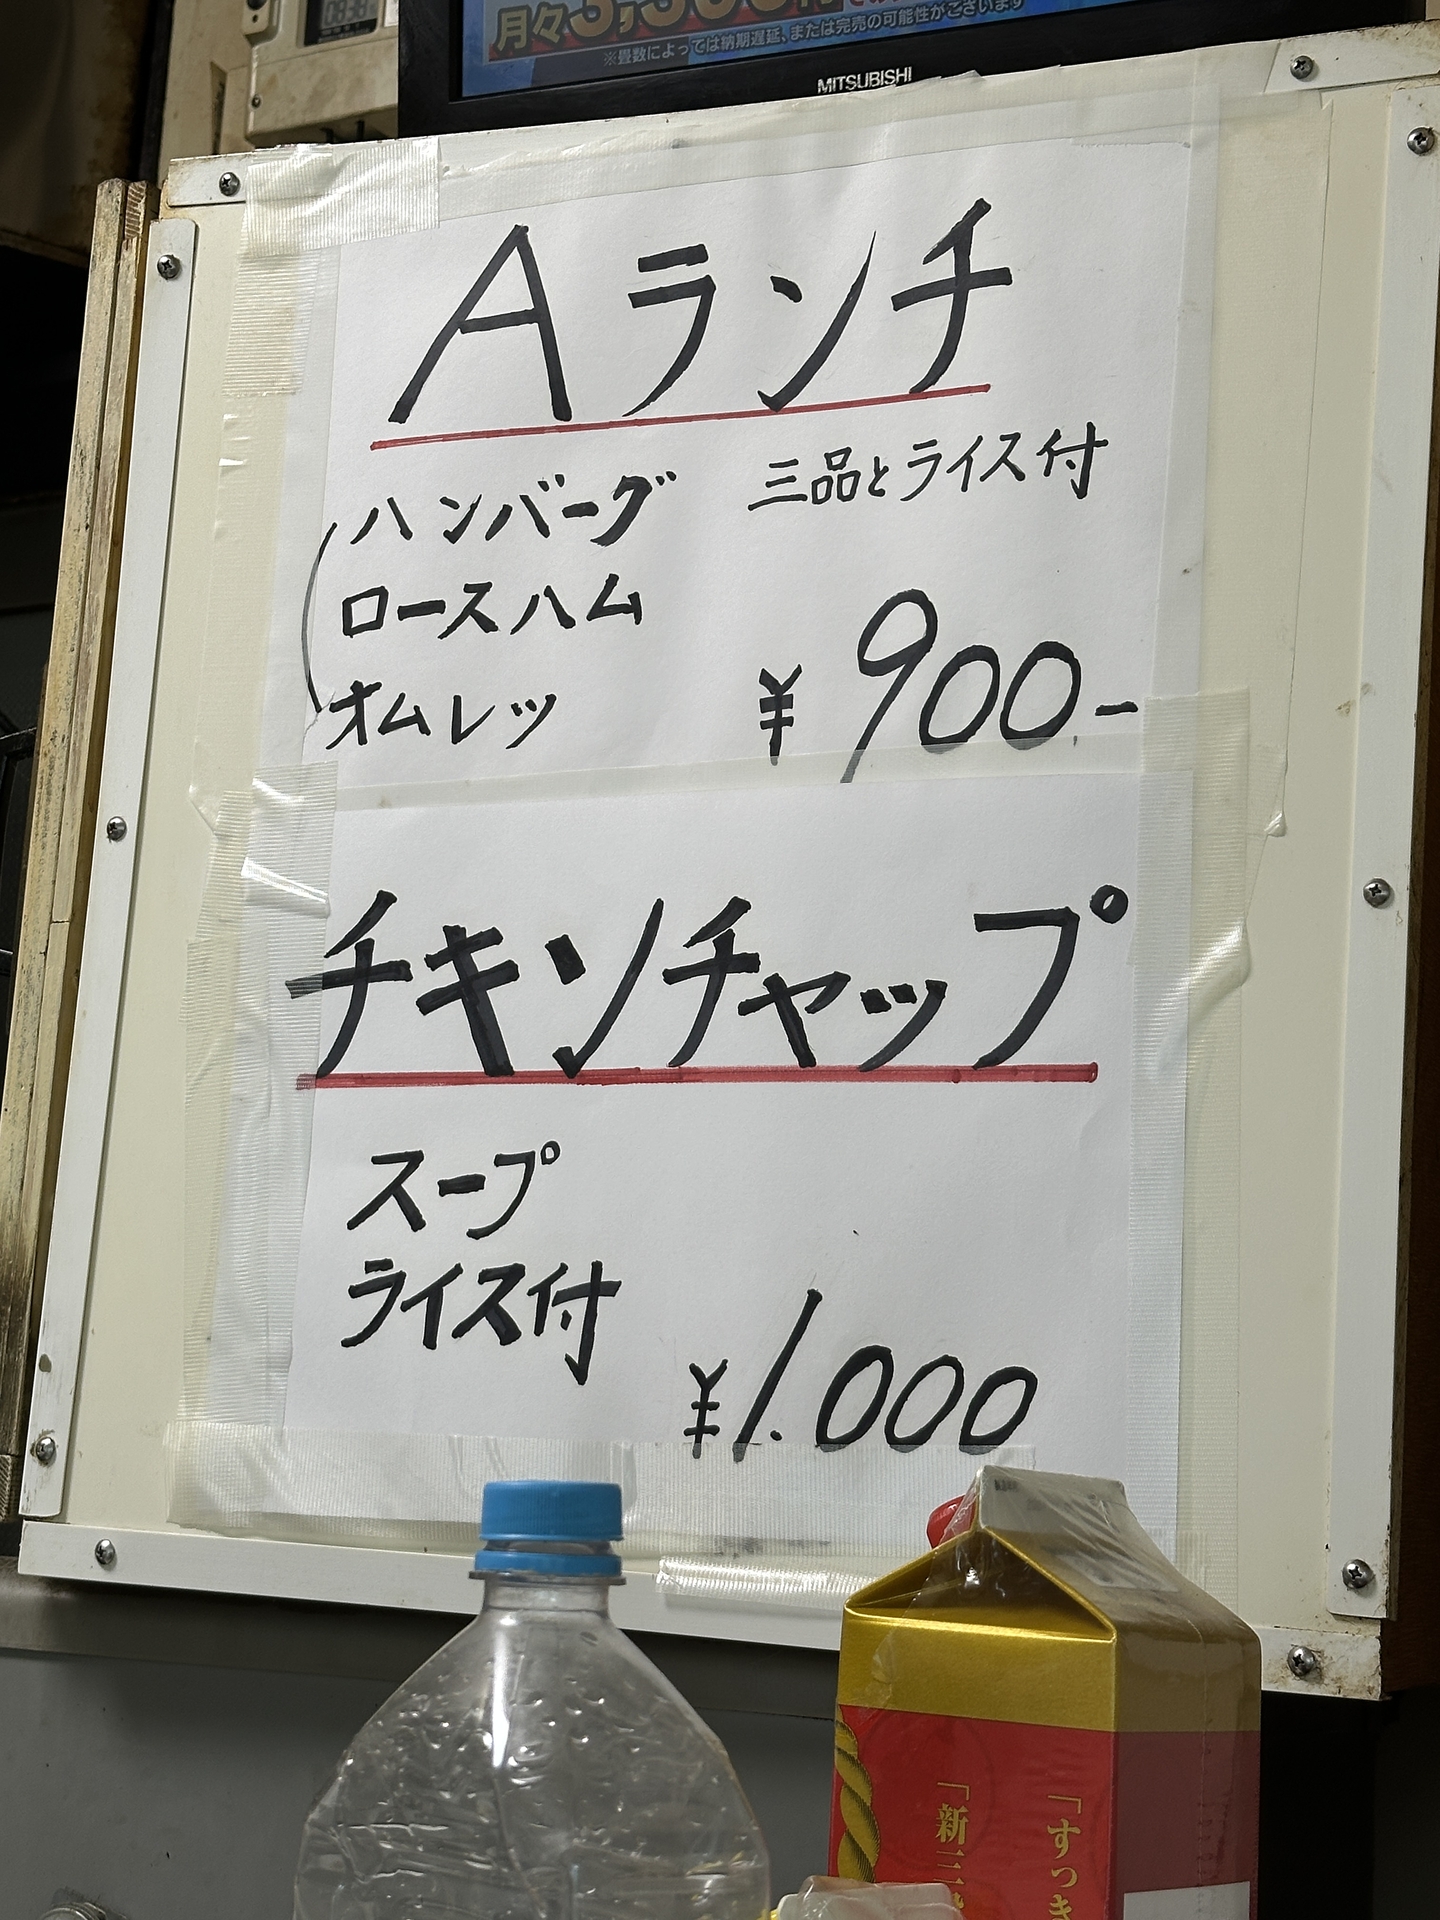 月々3,300
※畳数によっては納期遅延、または完売の可能性がございます
MITSUBISHI
Aランチ
三品とライス付
ハンバーグ
ロースハム
オムレツ
¥900-
チキンチャップ
スープ
ライス付
¥1.000
「すつき
「新三